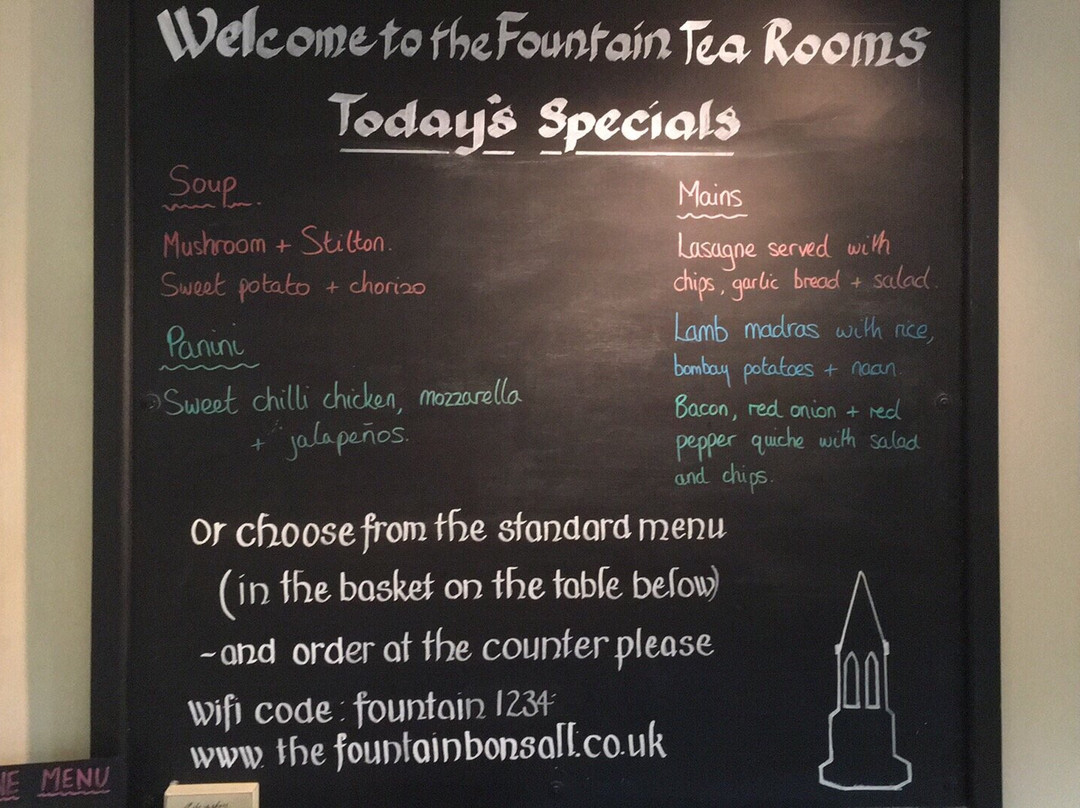 Welcome to the Fountain Tea Rooms
Today's Specials
Soup
Mushroom + Stilton.
Sweet potato + chorizo
Panini
Sweet chilli chicken, mozzarella
+ jalapeños.
Mains
Lasagne served with
chips, garlic bread + salad.
Lamb madras with rice,
bombay potatoes + naan.
Bacon, red onion + red
pepper quiche with salad
and chips.
Or choose from the standard menu
(in the basket on the table below)
- and order at the counter please
Wifi code: fountain 1234
www.thefountainbonsall.co.uk
MENU